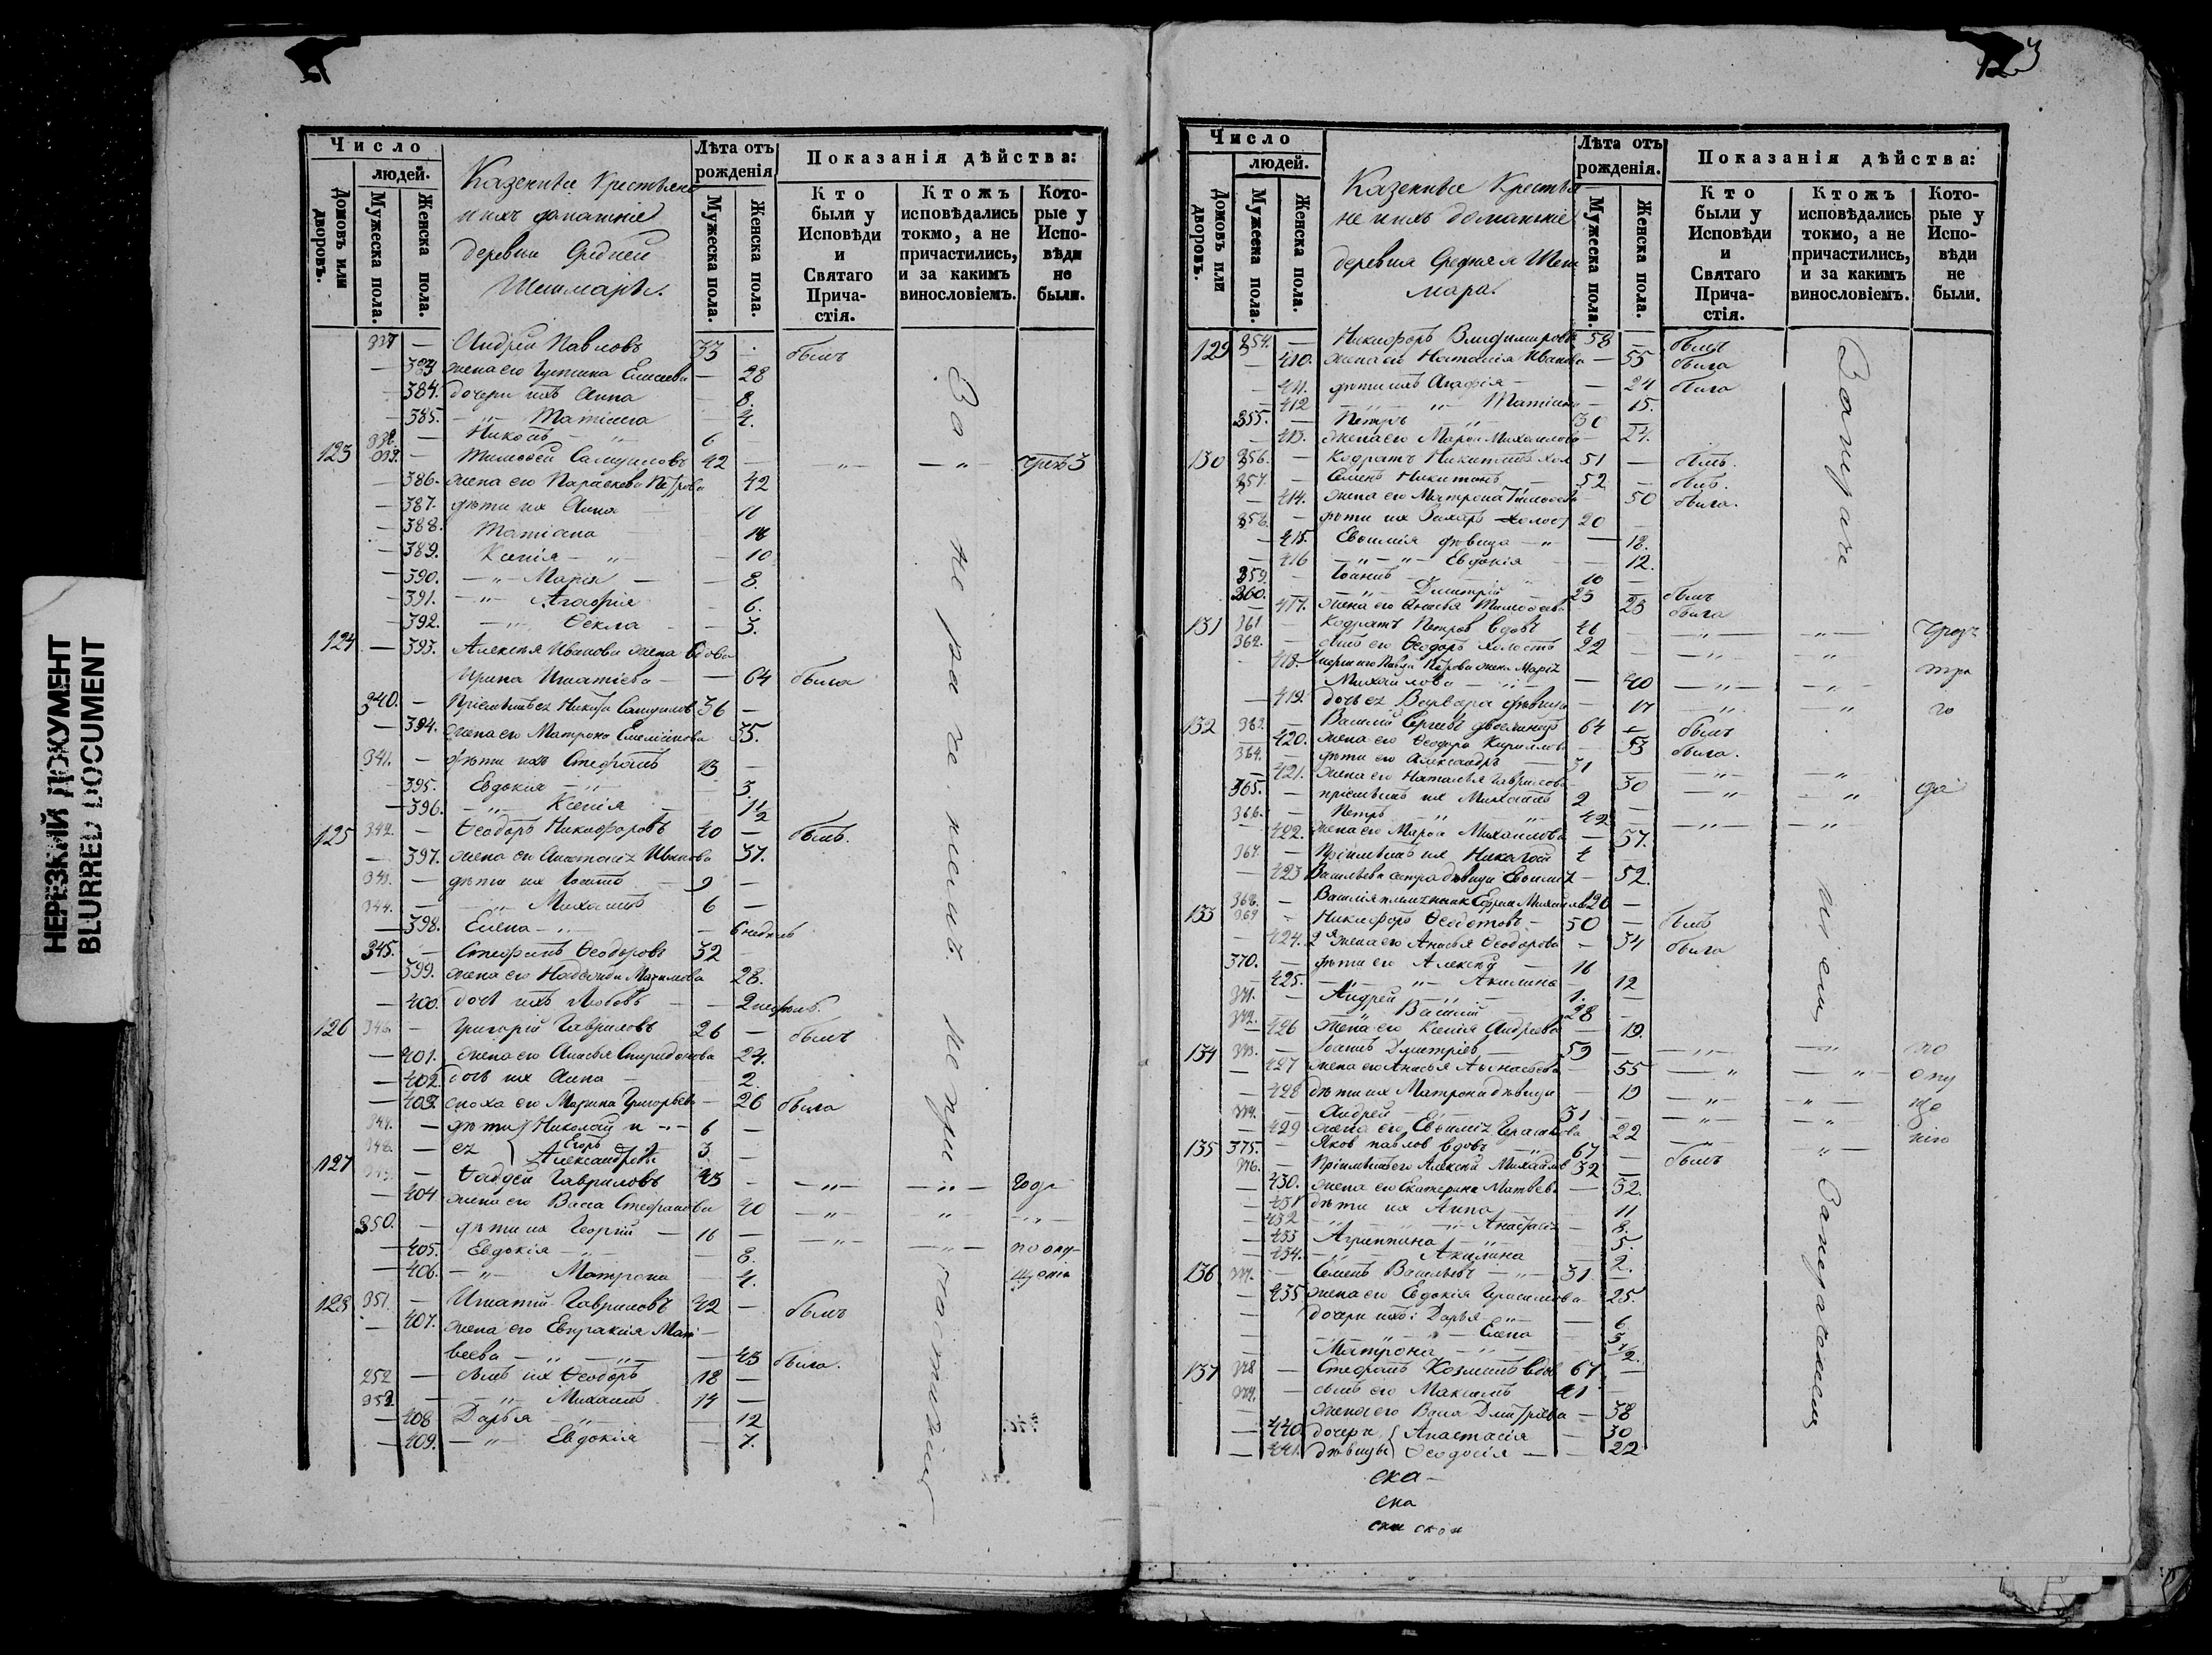 НЕРЕЗКИЙ ДОКУМЕНТ
BLURRED DOCUMENT
Число
людей.
Домовъ или дворовъ.
Мужеска пола.
Женска пола.
Казенные Крестьяне
и ихъ домашніе
деревни Средней
Шешмары.
Лѣта отъ рожденія
Мужеска пола.
Женска пола.
Показанія дѣйства:
Кто были у Исповѣди и Святаго Причастія.
Ктожъ исповѣдались токмо, а не причастились, и за какимъ винословіемъ.
Которые у Исповѣди не были.
337 — Андрей Павловъ 33 — былъ
— 383 жена его Устина Елисеева — 28
— 384. дочери ихъ Анна — 8.
— 385. — „ — Татіана 4.
338. — Никонъ — „ 6 —
123 339. — Тимофей Самуиловъ 42 — — „ — — „ — чрезъ 3
— 386. жена его Параскева Петрова 42
— 387. дѣти их Анна — 11
— 388. Татіана — 18
— 389. Ксенія — „ — 10
— 390. — „ — Марія — — 8.
— 391. — „ — Агафія — 6.
— 392. — „ — Ѳекла — — 3.
124 — 393. Алексѣя Иванова жена вдова
Ирина Игнатіева — — 64 была
340. — Пріемышъ ея Никита Самуилов 36 —
— 394. жена его Матрона Емельянова 35.
341. — дѣти ихъ Стефанъ 13 —
— 395. Евдокія — „ — 3.
— 396. — „ — Ксенія — 1 1/2
125 342. — Ѳеодоръ Никифоровъ 40 — былъ.
— 397. жена его Анастасія Иванова 37.
343. — дѣти их Іоаннъ — 9 —
344. — — „ — Михаилъ 6 —
— 398. Елена — „ — — 6 недѣль
345. — Стефанъ Ѳеодоровъ 32 —
— 399. жена его Надежда Максимова 28.
— 400. дочь ихъ Любовь — — 2 недѣль.
126 346. — Григорій Гавриловъ 26 — былъ
— 401. жена его Анисья Спиридонова 24.
— 402. дочь их Анна — 2.
— 403. сноха его Марина Григорьева — 26 была
347. — дѣти Николай и — „ — 6 —
348. — ея Егоръ Александровы 3 —
127 349. — Ѳаддей Гавриловъ 45 — — „ — — „ — года
— 404. жена его Васса Стефанова 40 — „ — „ — „ —
350. — дѣти их Георгій — 16 — — „ —
— 405. Евдокія — „ — 8. — „ — по опу-
— 406. — „ — Матрона — 4. щенію
128 351. — Игнатій Гавриловъ 42 — былъ
— 407. жена его Евпраксія Мат-
веева — „ — „ — — 45 была.
352 — сынъ их Ѳеодоръ 18 —
353 — — „ — Михаилъ 14 —
— 408 Дарья — „ — — 12
— 409. — „ — Евдокія — 7.
123
Число
людей.
Домовъ или дворовъ.
Мужеска пола.
Женска пола.
Казенные Крестья-
не и ихъ домашніе
деревня Средняя Шеш-
мара.
Лѣта отъ рожденія.
Мужеска пола.
Женска пола.
Показанія дѣйства:
Кто были у Исповѣди и Святаго Причастія.
Ктожъ исповѣдались токмо, а не причастились, и за какимъ винословіемъ.
Которые у Исповѣди не были.
129 354. — Никифоръ Владимировъ 58 — былъ
— 410. жена его Наталія Иванова — 55 была
— 411. дѣти ихъ Агафія — — 21 была
— 412 — „ — „ — Татіана — 15.
355. — Петръ — „ 30 —
— 413. жена его Марѳа Михаилова — 24.
130 356. — Кодратъ Никитинъ хол 51 — былъ.
357. — Семенъ Никитинъ — 52 — былъ.
— 414. жена его Матрона Тимоѳеева — 50 была.
358. — дѣти их Захаръ холост 20 —
— 415. Евѳимія дѣвица — „ — 18.
— 416 — „ — „ — Евдокія — 12.
359. — Іоаннъ — 10 —
360. — „ — Димитрій „ 23 — былъ
— 417. жена его Анисья Тимоѳеева 23 была
131 361 — Кодратъ Петров вдовъ 46 — — „ — — „ — чрезъ
362. — сынъ его Ѳеодоръ холостъ 22 — — „ — „
— 418. Павла Петрова жена Марія
Михайлова — „ — — 40 — „ — — „ — тра
— 419. дочь ея Варвара дѣвица — 17 — „ — „ го
132 363. — Василій Сергѣевъ 64 — былъ
— 420. жена его Ѳеодора Кириллова — 53 была.
364. — дѣти его Александръ — 31 — — „ — „
— 421. жена его Наталья Гаврилова — 30 — „ — — „
365. — пріемышъ их Михаилъ 2 —
366. — Петръ — „ 42 — — „ — — „
— 422. жена его Марѳа Михаилова — 37.
367. — Пріемышъ их Николай 4 —
— 423 Васильева сестра дѣвица Евѳимія — 52.
368. — Василія племянникъ 20 —
133 369 — Никифоръ Ѳедотовъ — 50 — былъ
— 424. 2я жена его Анисья Ѳеодорова — 34 была
370. — дѣти его Алексѣй — 16 —
— 425. — „ — Акилина — 12
371. — Андрей — „ — 1. —
372. — — „ — Василій 28 —
— 426 жена его Ксенія Андреева — 19.
134 373. — Іоаннъ Дмитріевъ 59 — — „ — — „ — по
— 427 жена его Анисья Аѳанасьева — 55 — „ — „ — опу
— 428 дѣти их Матрона дѣвица — 19 — „ — „ — ще
374. — Андрей — „ — 31 — — „ — „ нію
— 429 жена его Евѳимія Герасимова 22 — „ —
135 375. Яков павлов вдовъ „ 67 — былъ
376. — Пріемышъ его Алексѣй Михайлов 32 —
— 430. жена его Екатерина Матвѣева — 32.
— 431 дѣти их Анна — 11
— 432 — „ — „ — Анастасія — 8.
— 433 Агриппина — „ — — 5.
— 434. — Акилина — 2.
136 377. — Семенъ Васильевъ — „ — 31 —
— 435 жена его Евдокія Герасимова — 25.
— дочери ихъ: Дарья „ — 6
— — „ — Елена — 3
— Матрона — „ — 1/2.
137 378 — Стефанъ Козминъ вдов 67 —
379. — сынъ его Максимъ 41 —
— жена его Васса Дмитріева — 38
— 440. дочери Анастасія — 30
— 441. дѣвицы Ѳеодосія — — 22
ска —
ска
ски скои